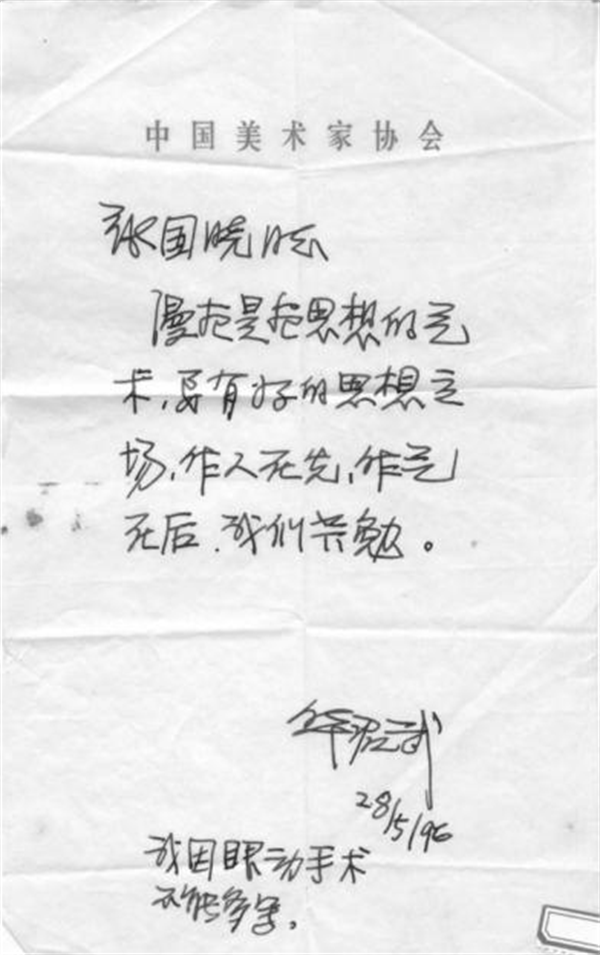 中国美术家协会
张国晓
漫画是思想的艺
术,要有好的思想立
场,作人在先,作艺
在后,我们共勉。
华君武
28/5/96
我因眼动手术
不能多写。